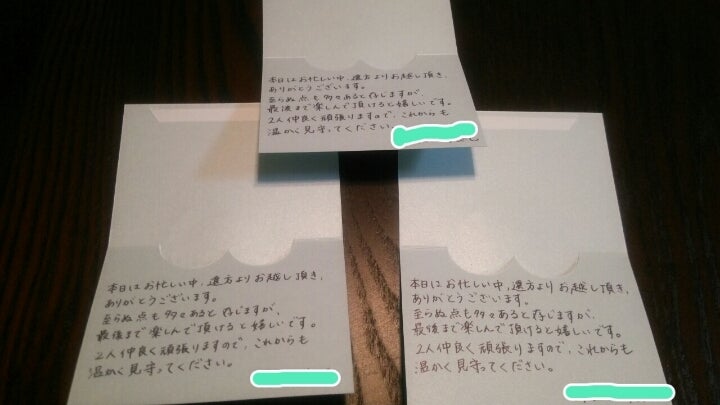 本日はお忙しい中、遠方よりお越し頂き、
ありがとうございます。
至らぬ点も多々あると存じますが、
最後まで楽しんで頂けると嬉しいです。
2人仲良く頑張りますので、これからも
温かく見守ってください。
本日はお忙しい中、遠方よりお越し頂き、
ありがとうございます。
至らぬ点も多々あると存じますが、
最後まで楽しんで頂けると嬉しいです。
2人仲良く頑張りますので、これからも
温かく見守ってください。
本日はお忙しい中、遠方よりお越し頂き、
ありがとうございます。
至らぬ点も多々あると存じますが、
最後まで楽しんで頂けると嬉しいです。
2人仲良く頑張りますので、これからも
温かく見守ってください。